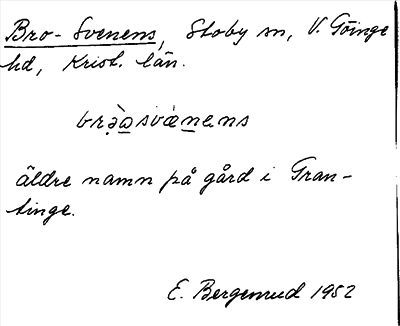 Bro-Svenens, Stoby sn, V. Göinge
hd, Krist. län.
äldre namn på gård i Gran-
tinge.
E. Bergenrud 1952